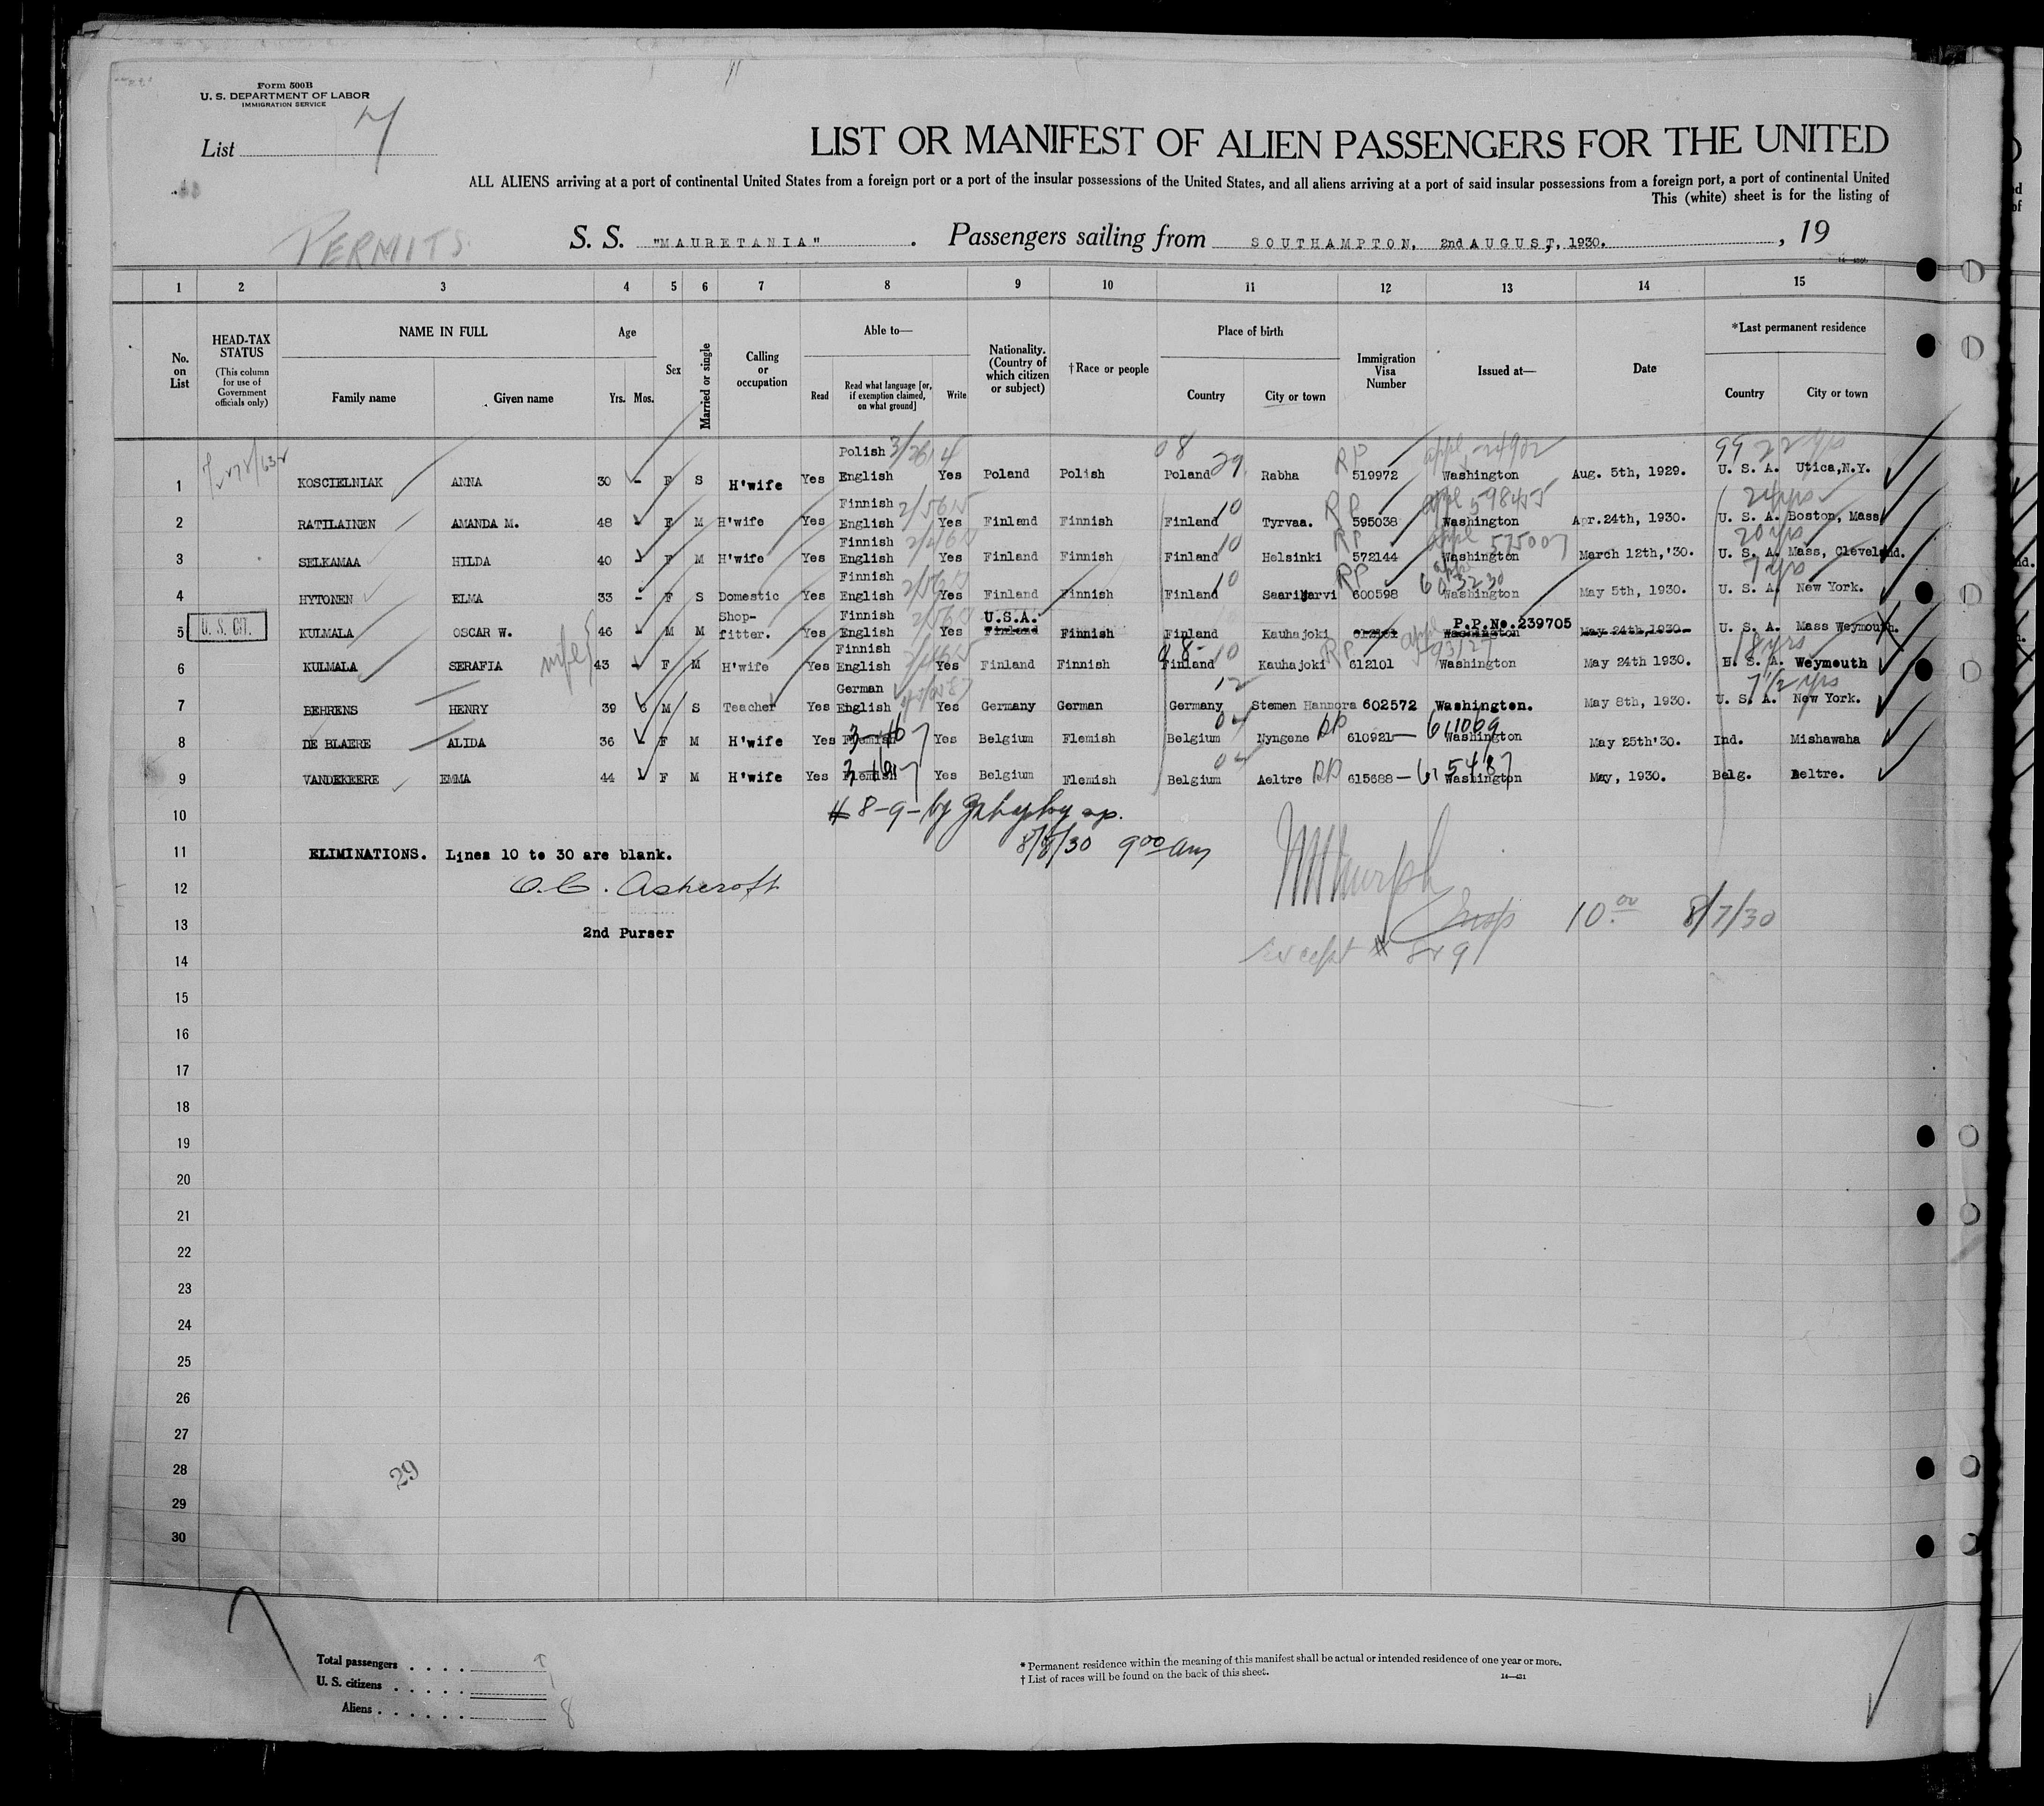 Form 500B
U. S. DEPARTMENT OF LABOR
IMMIGRATION SERVICE
List
LIST OR MANIFEST OF ALIEN PASSENGERS FOR THE UNITED
ALL ALIENS arriving at a port of continental United States from a foreign port or a port of the insular possessions of the United States, and all aliens arriving at a port of said insular possessions from a foreign port, a port of continental United
This (white) sheet is for the listing of
PERMITS
S. S. "MAURETANIA" . Passengers sailing from SOUTHAMPTON, 2nd AUGUST, 1930. , 19
1 2 3 4 5 6 7 8 9 10 11 12 13 14 15
No. on List
HEAD-TAX STATUS (This column for use of Government officials only)
NAME IN FULL Family name Given name
Age Yrs. Mos.
Sex
Married or single
Calling or occupation
Able to— Read Read what language [or, if exemption claimed, on what ground] Write
Nationality. (Country of which citizen or subject)
†Race or people
Place of birth Country City or town
Immigration Visa Number
Issued at—
Date
*Last permanent residence Country City or town
1 KOSCIELNIAK ANNA 30 - F S H'wife Yes Polish English Yes Poland Polish Poland 29 Rabha RP 519972 Washington Aug. 5th, 1929. U. S. A. Utica,N.Y.
2 RATILAINEN AMANDA M. 48 - F M H'wife Yes Finnish English Yes Finland Finnish Finland 10 Tyrvaa. RP 595038 appl 598455 Washington Apr.24th, 1930. 24yrs U. S. A. Boston, Mass
3 SELKAMAA HILDA 40 - F M H'wife Yes Finnish English Yes Finland Finnish Finland 10 Helsinki RP 572144 appl 575007 Washington March 12th,'30. 20yrs U. S. A. Mass, Cleveland.
4 HYTONEN ELMA 33 - F S Domestic Yes Finnish English Yes Finland Finnish Finland 10 Saarijarvi RP 600598 appl 603230 Washington May 5th, 1930. 7yrs U. S. A. New York.
U. S. CIT. 5 KULMALA OSCAR W. 46 - M M Shop-fitter. Yes Finnish English Yes U.S.A. Finland Finnish Finland Kauhajoki 612101 P.P.No.239705 Washington May 24th,1930. U. S. A. Mass Weymouth.
6 KULMALA wife SERAFIA 43 - F M H'wife Yes Finnish English Yes Finland Finnish Finland 10 Kauhajoki RP 612101 Washington May 24th 1930. 18yrs U. S. A. Weymouth
7 BEHRENS HENRY 39 M S Teacher Yes German English Yes Germany German Germany 12 Stemen Hannora 602572 Washington. May 8th, 1930. 7½ yrs U. S. A. New York.
8 DE BLAERE ALIDA 36 - F M H'wife Yes Flemish Yes Belgium Flemish Belgium Nyngene RP 610921— 611069 Washington May 25th'30. Ind. Mishawaha
9 VANDEKEERE EMMA 44 - F M H'wife Yes Flemish Yes Belgium Flemish Belgium Aeltre RP 615688— 615487 Washington May, 1930. Belg. Aeltre.
10 # 8-9- by
11 ELIMINATIONS. Lines 10 to 30 are blank. 8/8/30 9 00 am
12 O.C. Ashcroft
13 2nd Purser Insp 10.00 8/7/30
14 except # 8 & 9
15
16
17
18
19
20
21
22
23
24
25
26
27
28
29
29
30
Total passengers . . . .
U. S. citizens . . . . . 1
Aliens . . . . . . 8
* Permanent residence within the meaning of this manifest shall be actual or intended residence of one year or more.
† List of races will be found on the back of this sheet.
14—431